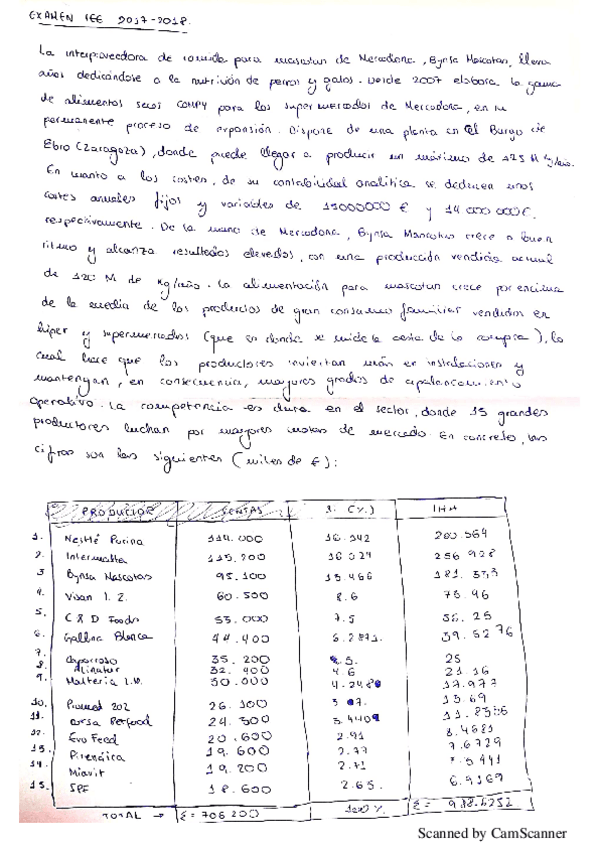 EXAMEN IEE 2017-2018.
La interproveedora de comida para mascotas de Mercadona, Bynsa Mascotas, lleva
años dedicándose a la nutrición de perros y gatos. Desde 2007 elabora la gama
de alimentos secos COMPY para los supermercados de Mercadona, en su
permanente proceso de expansión. Dispone de una planta en El Burgo de
Ebro (Zaragoza), donde puede llegar a producir un máximo de 125 M kg/año.
En cuanto a los costes, de su contabilidad analítica se deducen unos
costes anuales fijos y variables de 15000000 € y 14 000 000 €.
respectivamente. De la mano de Mercadona, Bynsa Mascotas crece a buen
ritmo y alcanza resultados elevados, con una producción vendida actual
de 120 M de kg/año. La alimentación para mascotas crece por encima
de la media de los productos de gran consumo familiar vendidos en
híper y supermercados (que es donde se mide la cesta de la compra), lo
cual hace que los productores inviertan más en instalaciones y
mantengan, en consecuencia, mayores grados de apalancamiento
operativo. La competencia es dura en el sector, donde 15 grandes
productores luchan por mayores cuotas de mercado. En concreto, las
cifras son las siguientes (miles de €):
PRODUCTOR VENTAS (%) IHH
1. Nestlé Purina 114.000 16.142
2. 115.200 256
3 Bynsa Mascotas 95.100 13.466 181.
4. Visan I.Z. 60.500 8.6 73.96
5. C&D Foods 53.000 7.5 56.25
6. Gallina Blanca 44.400 6.2871. 39.5276
7. 35.200 5. 25
8. Alinatur 32.400 4.6 21.16
9. 30.000 4.248 17.977
10. 202 26.100 3.7. 13.69
11. Petfood 24.300 3.440 11.8336
12. Evo Feed 20.600 2.91 8.4681
13. Pirenaica 19.600 2.77 7.6729
14. Miavit 19.200 2.71 7.3441
15. SPF 18.600 2.65. 6.9169
TOTAL → Σ = 706 200 100 % Σ =
Scanned by CamScanner